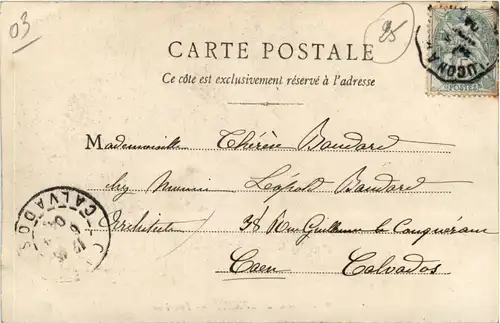 03
25
CARTE POSTALE
Ce côte est exclusivement réservé à l'adresse
Mademoiselle Thérèse Baudard
chez Monsieur Léopold Baudard
Architecte 38 Rue Guillaume le Conquérant
Caen Calvados
CALVADOS
LUÇON A
POSTES